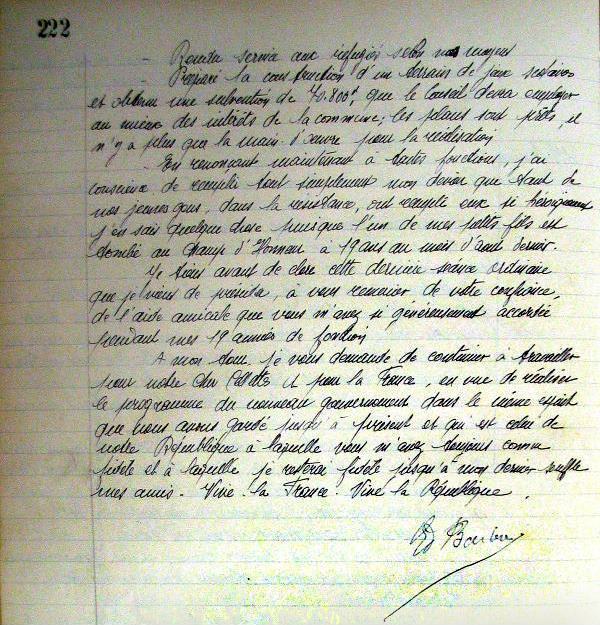 222
- Rendu service aux réfugiés selon nos moyens
- Préparé la construction d'un terrain de jeux scolaires
et obtenu une subvention de 70.800f que le Conseil devra employer
au mieux des intérêts de la commune; les plans sont prêts, il
n'y a plus que la main d'œuvre pour la réalisation
- En renonçant maintenant à toutes fonctions, j'ai
conscience de remplir tout simplement mon devoir que tant de
nos jeunes gens, dans la résistance, ont rempli eux si héroïquement
j'en sais quelque chose puisque l'un de mes petits fils est
tombé au Champ d'Honneur à 19 ans au mois d'août dernier.
Je tiens avant de clore cette dernière séance ordinaire
que je viens de présider, à vous remercier de votre confiance,
de l'aide amicale que vous m'avez si généreusement accordée
pendant mes 19 années de fonction
A mon tour je vous demande de continuer à travailler
pour notre cher et pour la France, en vue de réaliser
le programme du nouveau gouvernement dans le même esprit
que nous avons gardé jusqu'à présent et qui est celui de
notre République à laquelle vous m'avez toujours connu
fidèle et à laquelle je resterai fidèle jusqu'à mon dernier souffle
mes amis. Vive la France. Vive la République.